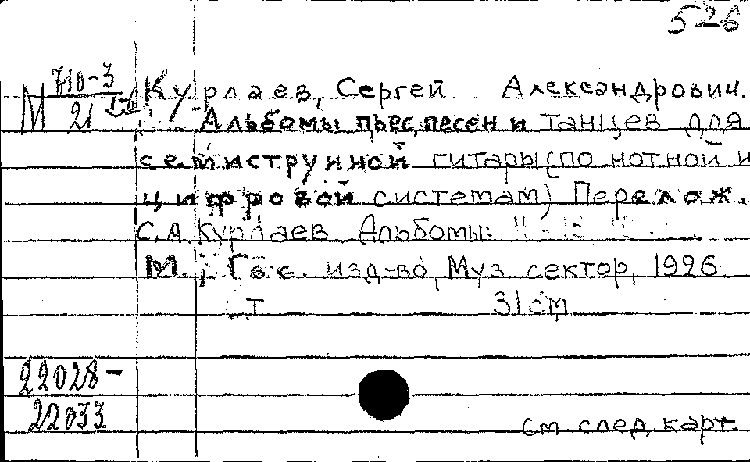 526
М 710-3
21
Курлаев, Сергей Александрович.
Альбомы пьес, песен и танцев для
семиструнной гитары (по нотной и
цифровой системам) Перелож.
С.А. Курлаев Альбомы:
М., Гос. изд-во, Муз сектор, 1926
т 31 см
22028-
22033
см след. карт.